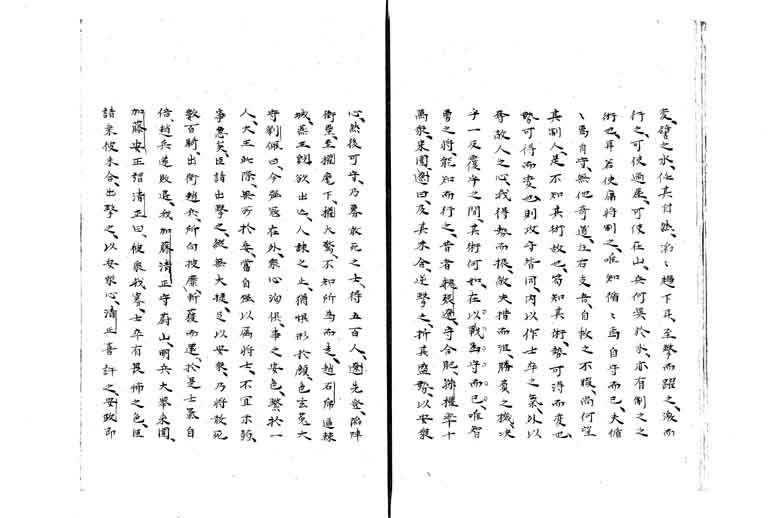 変、譬之水、任其自然、滔々趨下耳、至擊而躍之、激而
行之、可使過屋、可使在山、兵何異於水、亦有制之之
術也、耳若使庸将制之、唯知循々爲自守而已、夫循
々爲自守、無他奇道、左右支吾、自救之不暇、尚何望
其制人、是不知其術故也、苟知其術、勢可得而変也、
勢可得而変也、則攻守皆同、内以作士卒之氣、外以
奪敵人之心、我得勢而振、敵失措而沮、勝負之機、決
乎一反覆手之間、其術何如、在以戰爲守而已、唯智
勇之将、能知而行之、昔者魏張遼守合肥、孫權率十
萬衆来圍、遼曰、及其未合、逆擊之、折其盛勢、以安衆
心、然後可守、乃募敢死之士、得五百人、遼先登、陥陣
衝壘、至權麾下、權大驚、不知所爲而走、趙石虎逼棘
城、燕王皝欲出亡、人諫之止、猶惧形於顔色、玄菟大
守劉佩曰、今強寇在外、衆心洶惧、事之安危、繫於一
人、大王此際、無所於委、當自強以厲将士、不宜示弱、
事急矣、臣請出擊之、縦無大捷、足以安衆、乃将敢死
數百騎、出衝趙兵、所向披靡、斬獲而還、於是士氣自
倍、趙兵遂敗退、我加藤清正守蔚山、明兵大擧来圍、
加藤安正謂清正曰、彼衆我寡、士卒有畏怖之色、臣
請乗彼未合、出擊之、以安衆心、清正喜許之、安政即